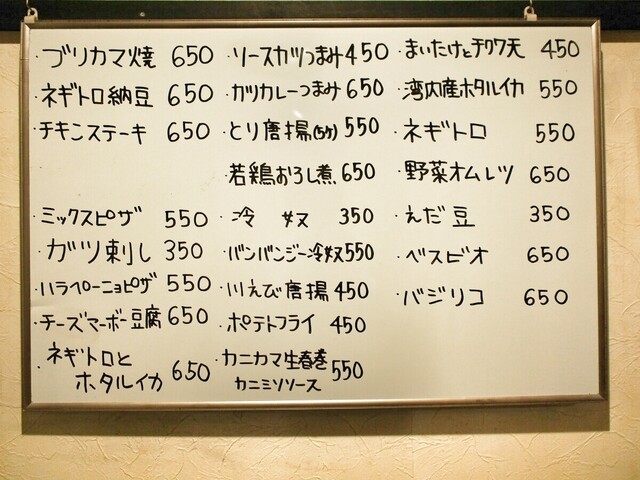 ・ブリカマ焼 650
・ネギトロ納豆 650
・チキンステーキ 650
・ミックスピザ 550
・ガツ刺し 350
・ハラペーニョピザ 550
・チーズマーボー豆腐 650
・ネギトロと
ホタルイカ 650
・ソースカツつまみ 450
・カツカレーつまみ 650
・とり唐揚(5ケ) 550
若鶏おろし煮 650
・冷 奴 350
・バンバンジー冷奴 550
・川えび唐揚 450
・ポテトフライ 450
・カニカマ生春巻
カニミソソース 550
・まいたけとチクワ天 450
・湾内産ホタルイカ 550
・ネギトロ 550
・野菜オムレツ 650
・えだ豆 350
・ベスビオ 650
・バジリコ 650